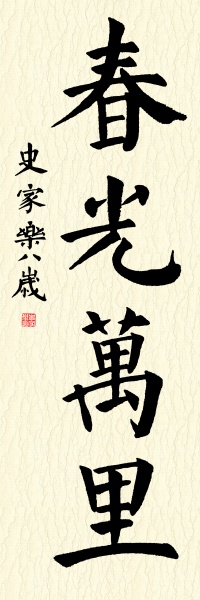 春光萬里
史家樂八歲